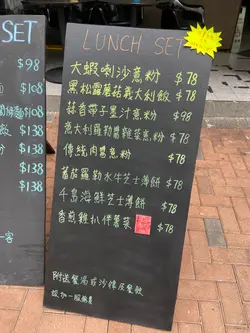 SET
$98
$108
$108
$138
$138
$138
LUNCH SET
大蝦喇沙意粉 $78
黑松露蘑菇義大利飯 $78
蒜香帶子墨汁意粉 $98
意大利羅勒醬雞茸意粉 $78
傳統肉醬意粉 $78
蕃茄羅勒水牛芝士薄餅 $78
千島海鮮芝士薄餅 $78
香煎雞扒伴薯菜 $78
附送餐湯或沙律及餐飲
設加一服務費